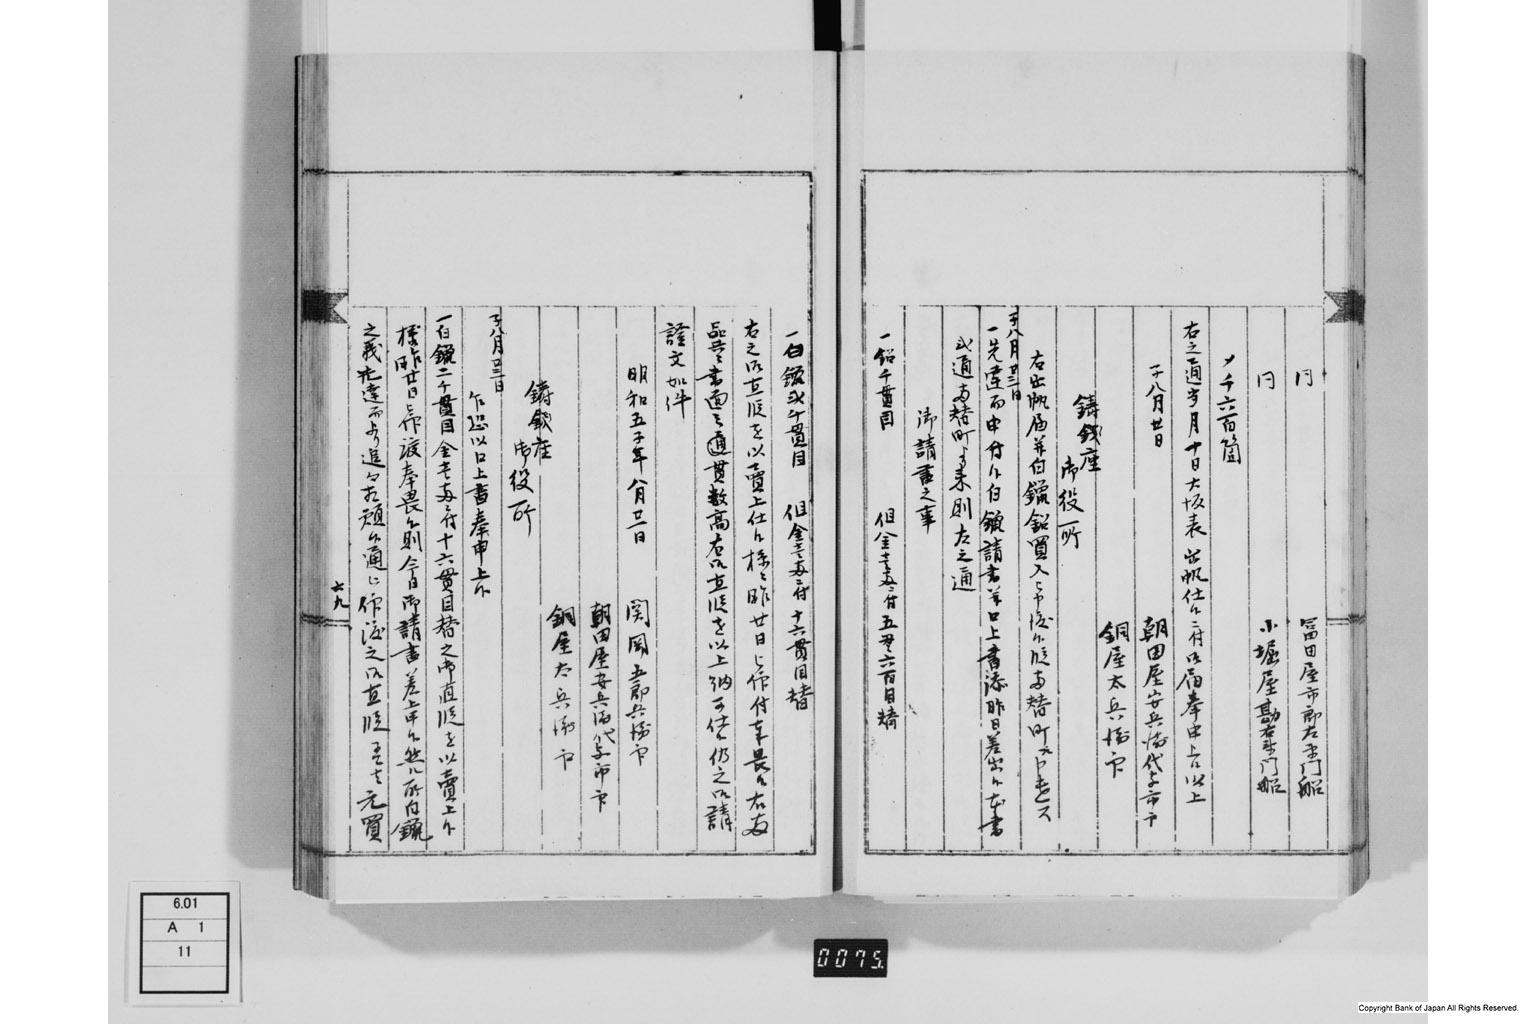 同 冨田屋市郎左衛門船
同 小堀屋勘右衛門船
〆千六百箇
右之通当月十日大坂表出帆仕候ニ付御届奉申上候以上
子八月廿日 朝田屋安兵衛代与市印
銅屋太兵衛印
鋳銭座
御役所
右出帆届并白鑞鉛買入
子八月廿二日
一先達而申付候白鑞請書并口上書添昨日差出候本書
弐通両替町より来則左之通
御請書之事
一鉛千貫目 但金壱両ニ付五貫六百目替
一白鑞弐千貫目 但金壱両ニ付十六貫目替
右之御直段を以売上仕候様ニ昨廿日被仰付奉畏候右両
品共ニ書面之通貫数高右御直段を以上納可仕候仍之御請
證文如件
明和五子年八月廿一日 関岡五郎兵衛印
朝田屋安兵衛代与市印
銅屋太兵衛印
鋳銭座
御役所
子八月廿二日
乍恐以口上書奉申上候
一白鑞二千貫目金壱両ニ付十六貫目替之御直段を以賣上候
様昨廿日被仰渡奉畏候則今日御請書差上申候然ル所白鑞
之義先達而より追々相願候通ニ
元買
六九
6.01
A 1
11
0075.
Copyright Bank of Japan All Rights Reserved.